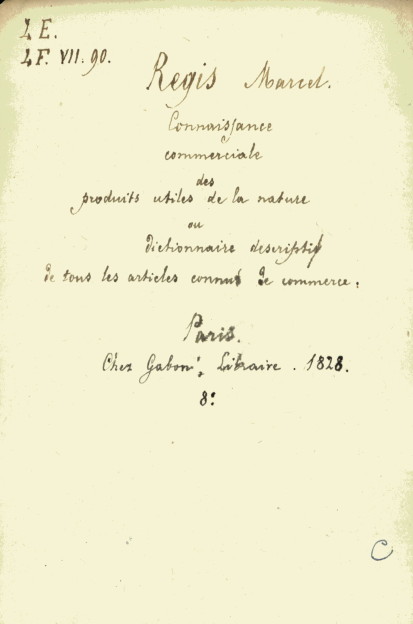 I E.
I F. VII. 90.
Regis Marcel.
Connaissance
commerciale
des
produits utiles de la nature
ou
dictionnaire descriptif
de tous les articles connus de commerce.
Paris.
Chez Gabon, Libraire. 1828.
8:
C